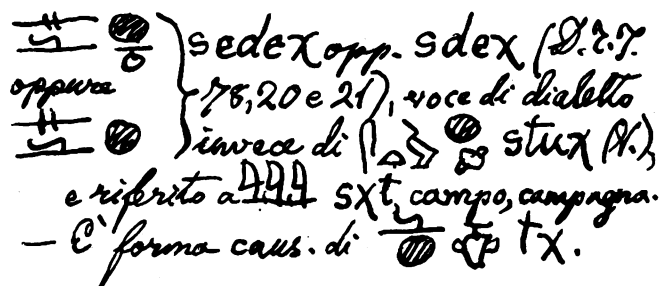 sedex opp. sdex (D.I.T.
oppure 78, 20 e 21), voce di dialetto
invece di stux (N.),
e riferito a sxt, campo, campagna.
— È forma caus. di tx.